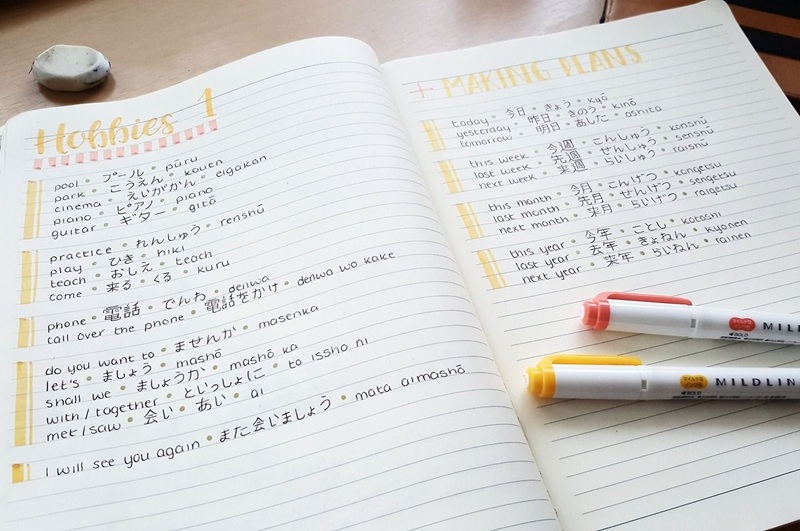 Hobbies 1
pool • プール • pūru
park • こうえん • kouen
cinema • えいがかん • eigakan
piano • ピアノ • piano
guitar • ギター • gitā
practice • れんしゅう • renshū
play • ひき • hiki
teach • おしえ • teach
come • 来る • くる • kuru
phone • 電話 • でんわ • denwa
call over the phone • 電話をかけ • denwa wo kake
do you want to • ませんか • masenka
let's • ましょう • mashō
shall we • ましょうか • mashō ka
with / together • といっしょに • to issho ni
met / saw • 会い • あい • ai
I will see you again • また会いましょう • mata aimashō
+ MAKING PLANS
today • 今日 • きょう • kyō
yesterday • 昨日 • きのう • kinō
tomorrow • 明日 • あした • ashita
this week • 今週 • こんしゅう • konshū
last week • 先週 • せんしゅう • senshū
next week • 来週 • らいしゅう • raishū
this month • 今月 • こんげつ • kongetsu
last month • 先月 • せんげつ • sengetsu
next month • 来月 • らいげつ • raigetsu
this year • 今年 • ことし • kotoshi
last year • 去年 • きょねん • kyonen
next year • 来年 • らいねん • rainen
MIL
BOLD
MILDLIN
BOLD